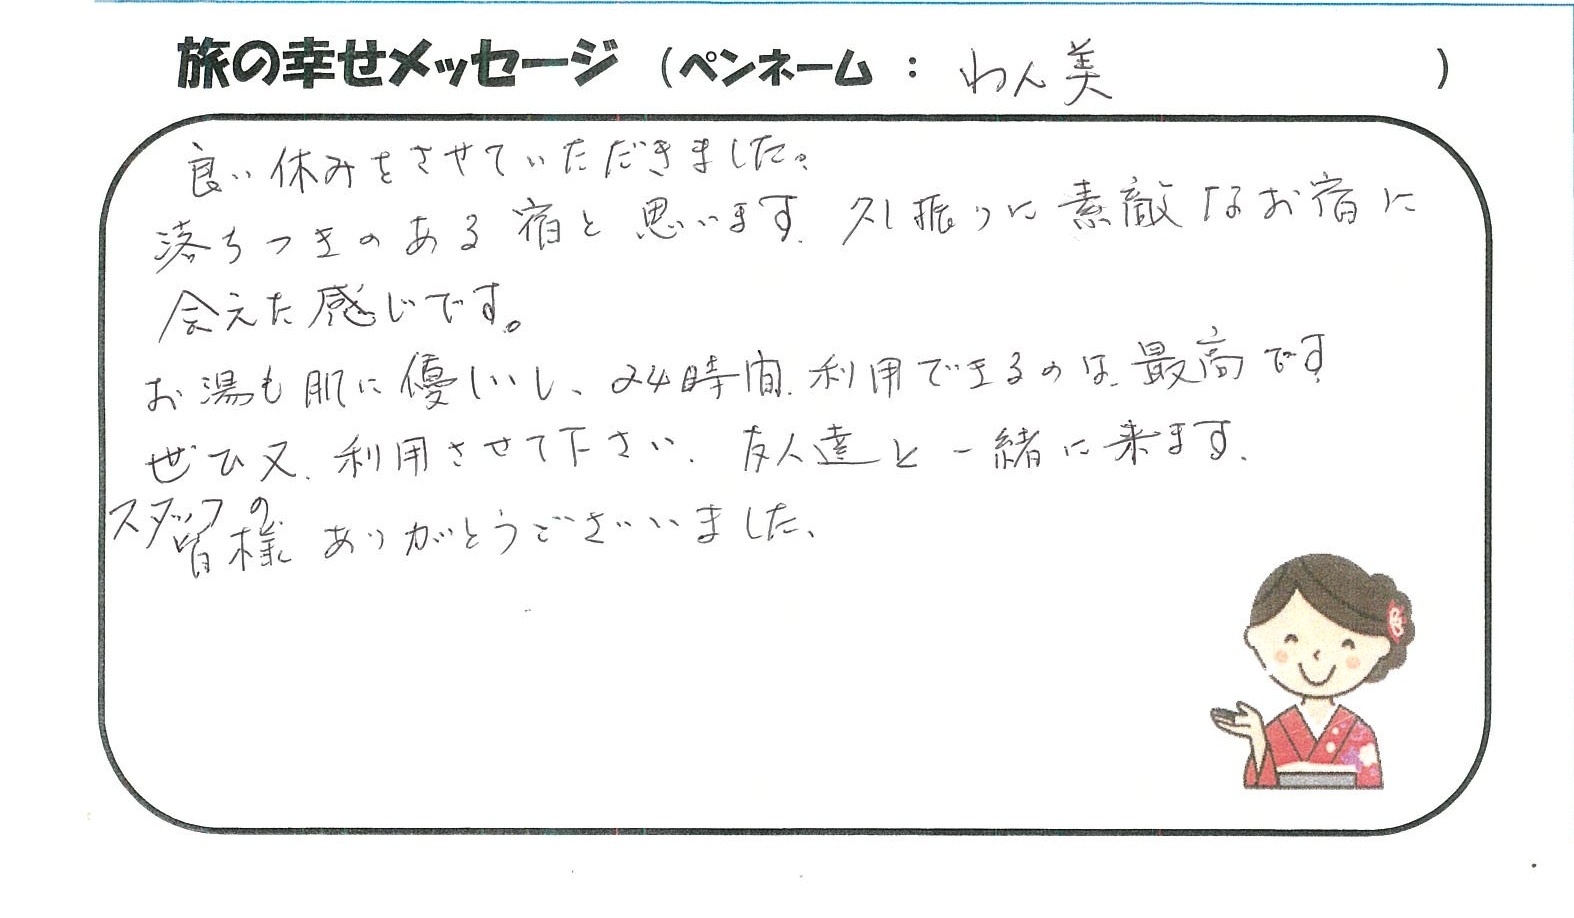 旅の幸せメッセージ (ペンネーム : わん美 )
良い休みをさせていただきました。
落ちつきのある宿と思います。久し振りに素敵なお宿に
会えた感じです。
お湯も肌に優しいし、24時間利用できるのは、最高です
ぜひ又、利用させて下さい。友人達と一緒に来ます。
スタッフの
皆様 ありがとうございいました、